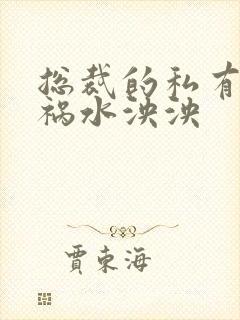 总裁的私有
祸水泱泱
贾东海